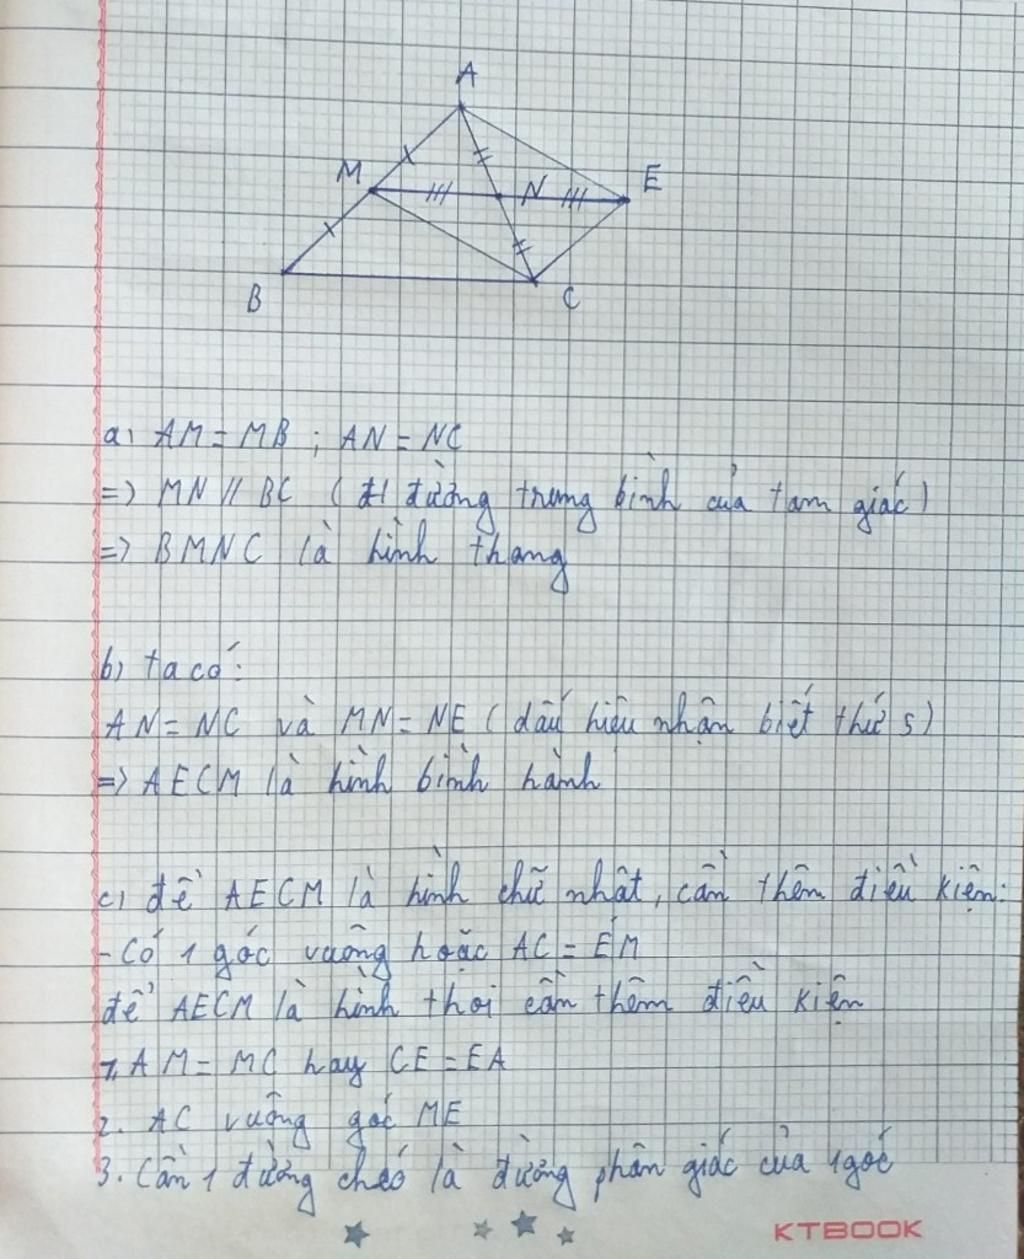 A
M
N
E
B
C
a) AM = MB ; AN = NC
=> MN // BC ( đường trung bình của tam giác)
=> BMNC là hình thang
b) ta có:
AN = NC và MN = NE ( dấu hiệu nhận biết thứ 5)
=> AECM là hình bình hành
c) để AECM là hình chữ nhật, cần thêm điều kiện:
- Có 1 góc vuông hoặc AC = EM
để AECM là hình thoi cần thêm điều kiện
1. AM = MC hay CE = EA
2. AC vuông góc ME
3. Cần 1 đường chéo là đường phân giác của 1 góc
KTBOOK